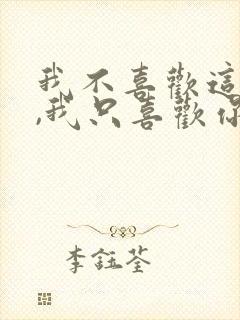 我不喜歡這
,我只喜歡你
李鈺荃